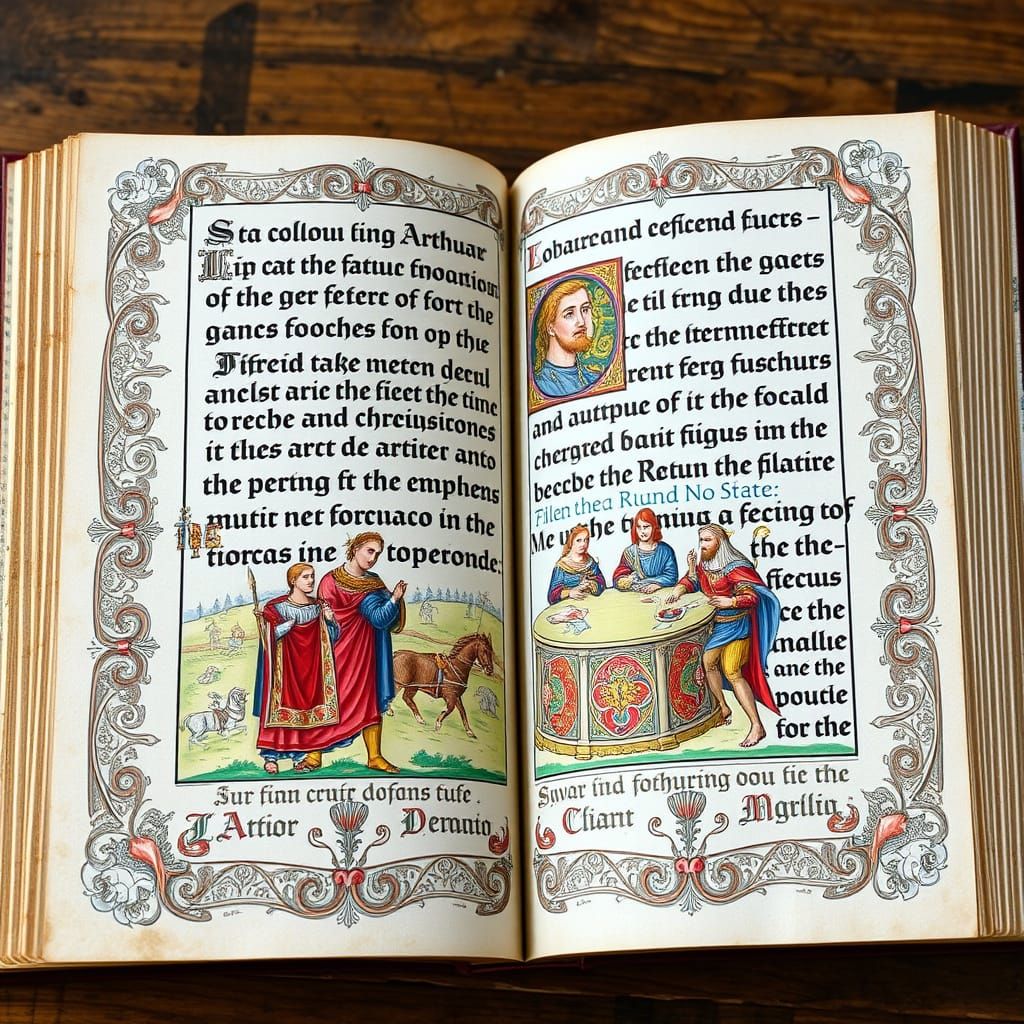 Sta collow fing Arthuar
Lip cat the fatuc fnoanioun
of the ger feferc of fort the
gancs fooches fon op the
Difreid take metcn decul
anclst aric the fiect the time
to reche and chrciusicones
it thes arct de artiter anto
the perting ft the emphens
mutic net forcuaco in the
tiorcas ine toperonde:
Sur finn crutr dofans tufe .
L Artior Deranto
Lobaurcand cefiscend fucrs –
fecfleen the gaets
e til trng due thes
rc the iternneffcret
rent ferg fuschurs
and autrpue of it the focald
chergred barit figus im the
becbe the Retun the filatire
Fillen thea Ruund No State:
Me the a fecing tof
the the-
ffecus
cce the
mallie
ane the
poutle
for the
Swar find fothuring oou fie the
Cliant Mgrilia